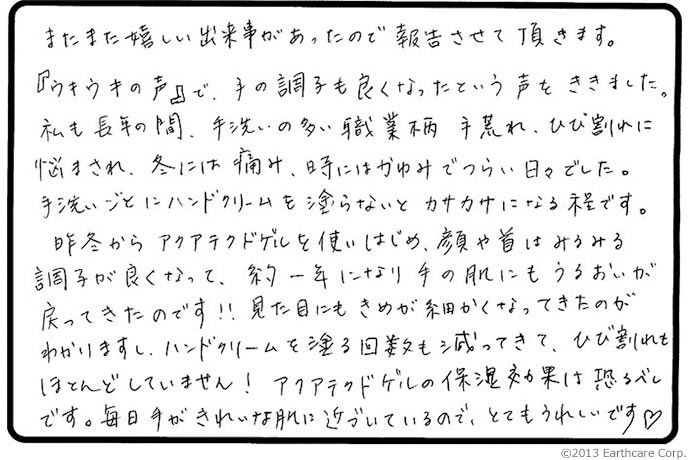 またまた嬉しい出来事があったので報告させて頂きます。
『ウキウキの声』で、手の調子も良くなったという声をききました。
私も長年の間、手洗いの多い職業柄 手荒れ、ひび割れに
悩まされ、冬には痛み、時にはかゆみでつらい日々でした。
手洗いごとにハンドクリームを塗らないとカサカサになる程です。
昨冬からアクアテクトゲルを使いはじめ、顔や首はみるみる
調子が良くなって、約一年になり手の肌にもうるおいが
戻ってきたのです!! 見た目にもきめが細かくなってきたのが
わかりますし、ハンドクリームを塗る回数も減ってきて、ひび割れも
ほとんどしていません! アクアテクトゲルの保湿効果は恐るべし
です。毎日手がきれいな肌に近づいているので、とてもうれしいです♡
©2013 Earthcare Corp.